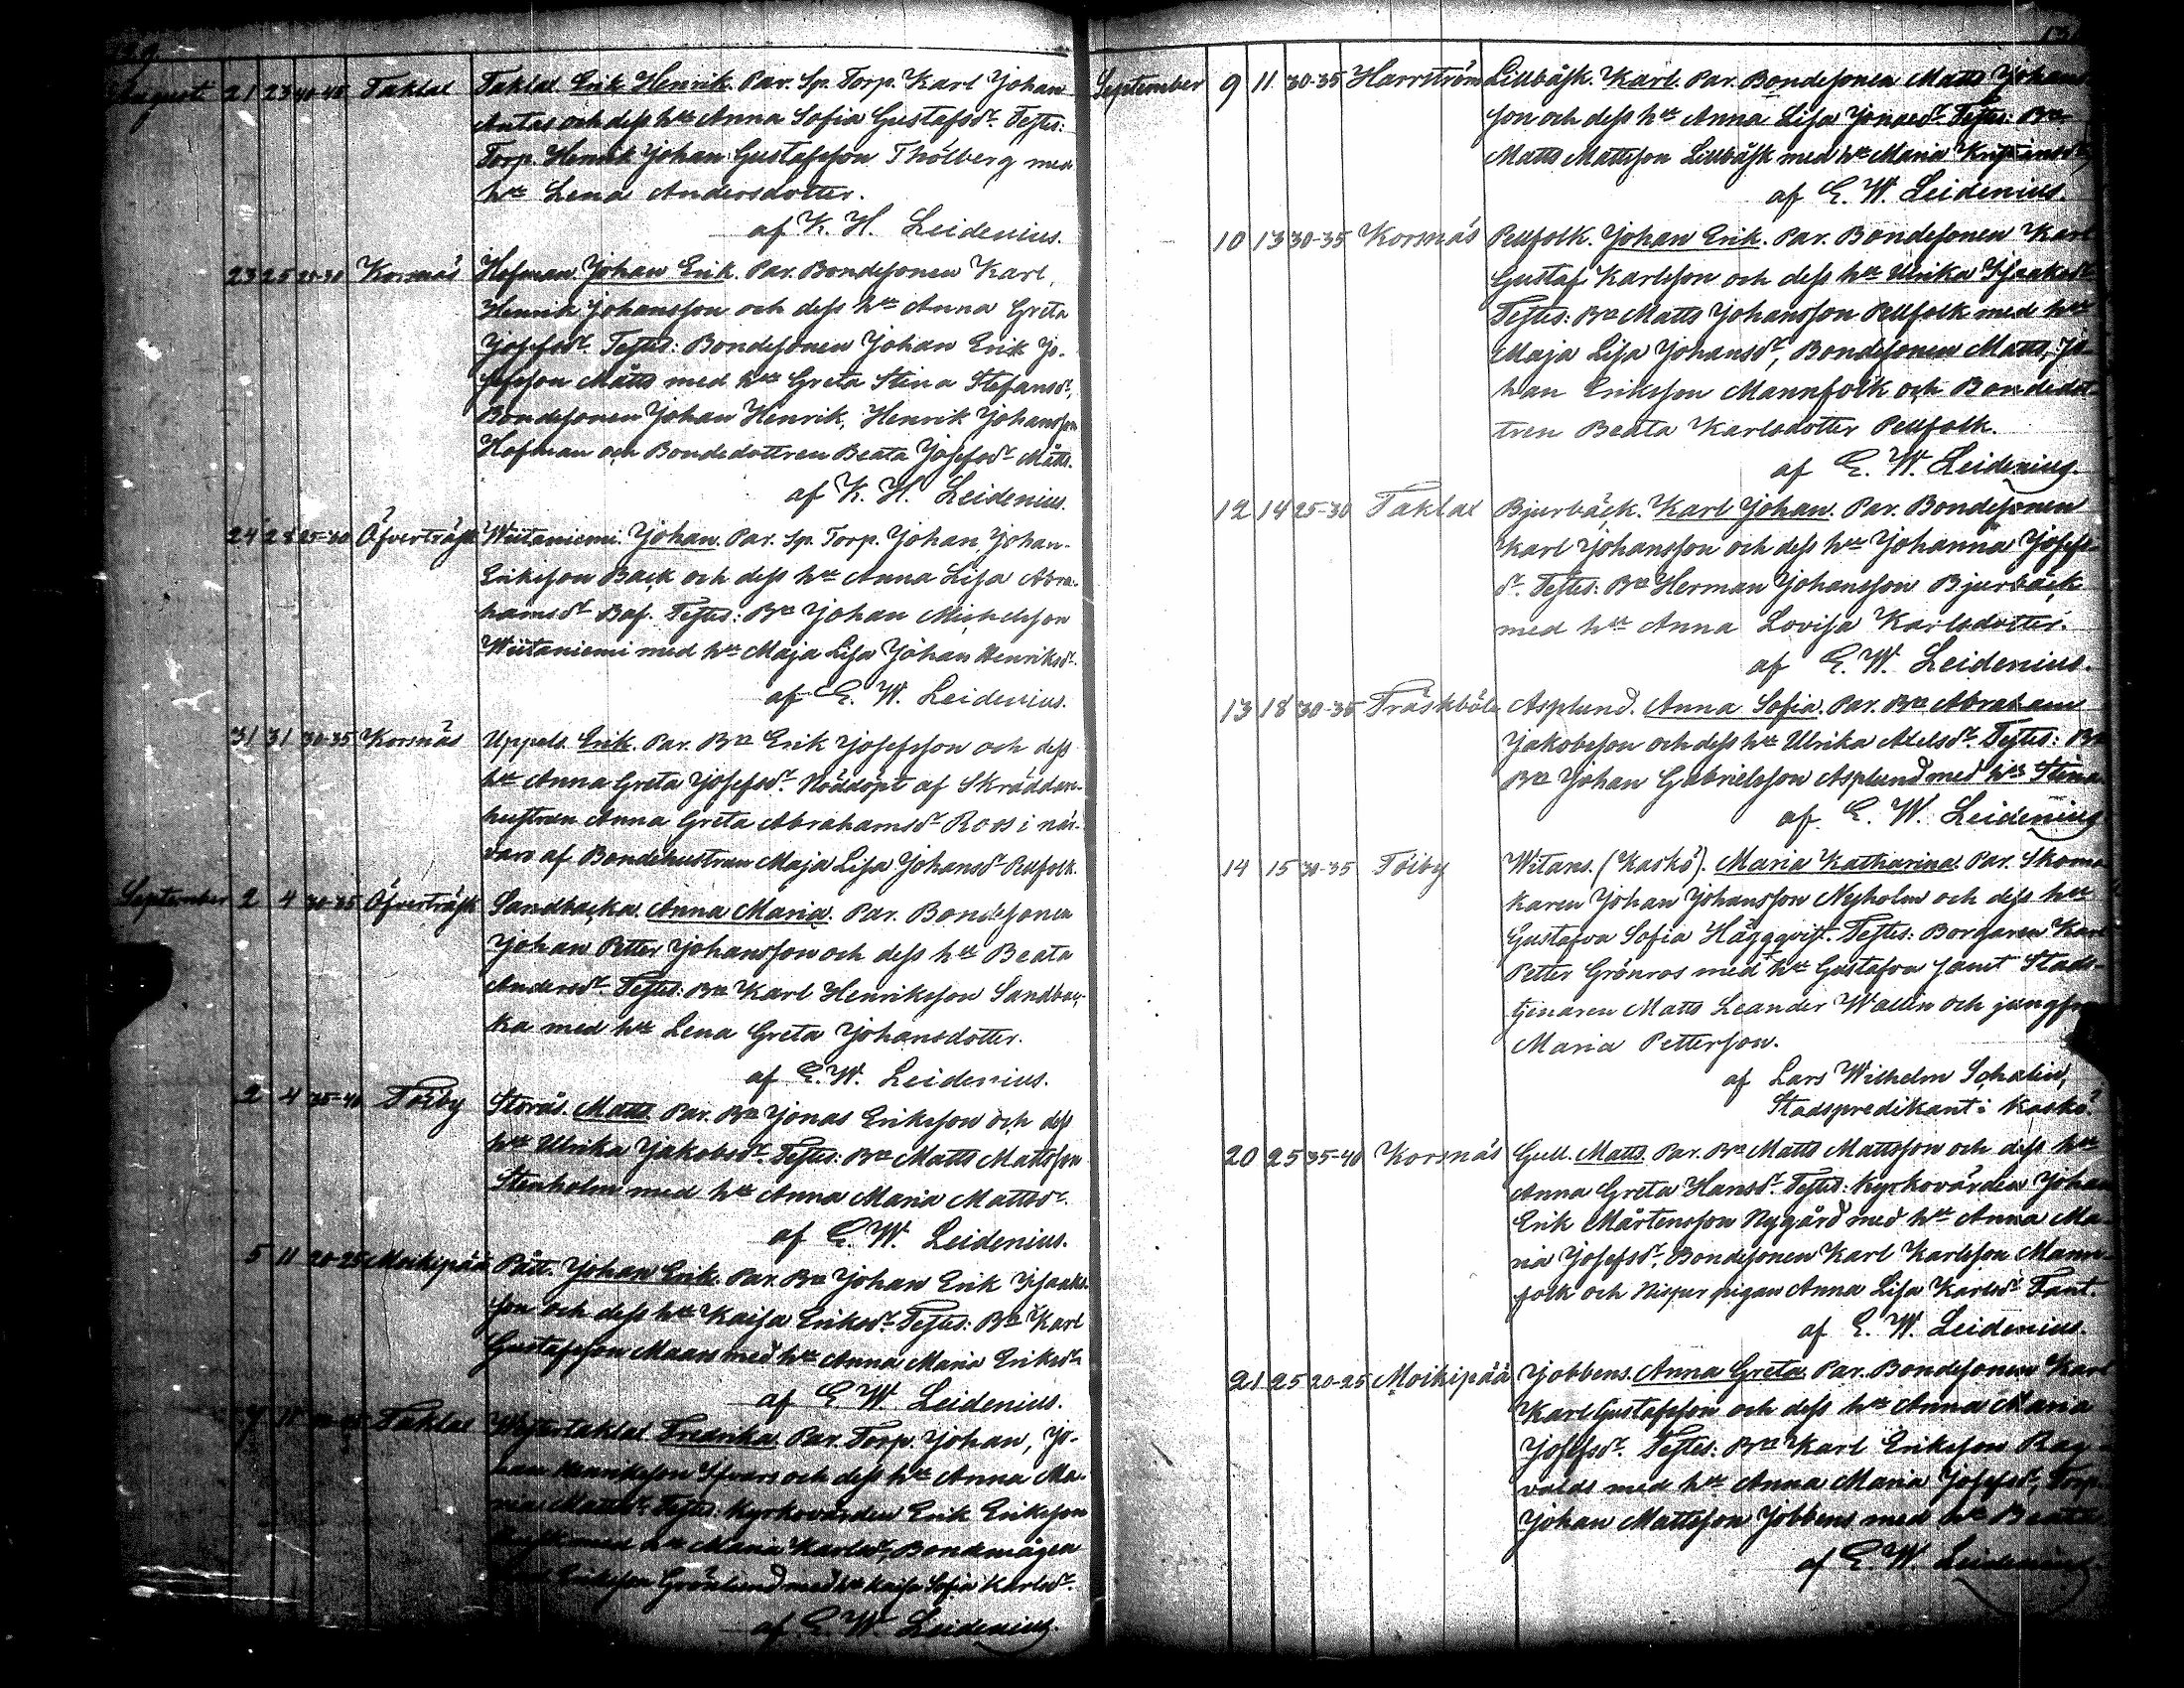 August 21 23 40-45 Taklax Taklax. Erik Henrik. Par. Sp. Torp. Karl Johan
Antas och dess hu Anna Sofia Gustafsdr. Testes:
Torp. Henrik Johan Gustafsson Thölberg med
hu Lena Andersdotter.
af K. H. Leidenius.
23 25 25-30 Korsnäs Hofman. Johan Erik. Par. Bondesonen Karl
Henrik Johansson och dess hu Anna Greta
Josefsdr. Testes: Bondesonen Johan Erik Jo-
sefsson Mårts med hu Greta Stina Stefansdr,
Bondesonen Johan Henrik, Henrik Johansson
Hofman och Bondedottren Beata Josefsdr Mårts.
af K. H. Leidenius.
24 28 25-30 Öfverträsk Wiitaniemi. Johan. Par. Sp. Torp. Johan, Johan
Eriksson Back och dess hu Anna Lisa Abra-
hamsdr Testes: Bn Johan Michelsson
Wiitaniemi med hu Maja Lisa Johan Henriksdr.
af E. W. Leidenius.
31 31 30-35 Korsnäs Uppels. Erik. Par. Bn Erik Josefsson och dess
hu Anna Greta Josefsdr. Nöddöpt af Skräddare-
hustrun Anna Greta Abrahamsdr Roos i när-
varo af Bondehustrun Maja Lisa Johansdr Pellfolk.
September 2 4 30-35 Öfverträsk Sandbacka. Anna Maria. Par. Bondesonen
Johan Petter Johansson och dess hu Beata
Andersdr. Testes: Bn Karl Henriksson Sandbac-
ka med hu Lena Greta Johansdotter.
af E. W. Leidenius.
2 4 35-40 Töiby Storås. Matts. Par. Bn Jonas Eriksson och dess
hu Ulrika Jakobsdr. Testes: Bn Matts Mattsson
Stenholm med hu Anna Maria Mattsdr.
af E. W. Leidenius.
5 11 20-25 Moikipää Pått. Johan Erik. Par. Bn Johan Erik Isaaks-
son och dess hu Kaisa Eriksdr. Testes: Bn Karl
Gustafsson Maars med hu Anna Maria Eriksdr
af E W Leidenius.
Taklax Westertaklax Fredrika. Par. Torp. Johan, Jo-
han Henriksson Ifvars och dess hu Anna Ma-
ria Mattsdr, Testes: Kyrkovärden Erik Eriksson
med hu Maria Karlsdr, Bondemågen
Eriksson Grönlund med hu Kaisa Sofia Karlsdr.
af E. W. Leidenius.
September 9 11 30-35 Harrström Lillbåsk. Karl. Par. Bondesonen Matts Johans-
son och dess hu Anna Lisa Jonasdr. Testes: Bn
Matts Mattsson Lillbåsk med hu Maria
af E. W. Leidenius.
10 13 30-35 Korsnäs Pellfolk. Johan Erik. Par. Bondesonen Karl
Gustaf Karlsson och dess hu Ulrika Isaaksdr
Testes: Bn Matts Johansson Pellfolk med hu
Maja Lisa Johansdr, Bondesonen Matts, Jo-
han Eriksson Mannfolk och Bondedot-
tren Beata Karlsdotter Pellfolk.
af E. W. Leidenius.
12 14 25-30 Taklax Bjurbäck. Karl Johan. Par. Bondesonen
Karl Johansson och dess hu Johanna Josefs-
dr. Testes: Bn Herman Johansson Bjurbäck
med hu Anna Lovisa Karlsdotter.
af E. W. Leidenius.
13 18 30-35 Träskböle Asplund. Anna Sofia. Par. Bn Abraham
Jakobsson och dess hu Ulrika Axelsdr. Testes: Bn
Bn Johan Gabrielsson Asplund med hu Stina
af E. W. Leidenius
14 15 30-35 Töiby Witars. (Kaskö). Maria Katharina. Par. Skoma-
karen Johan Johansson Nyholm och dess hu
Gustafva Sofia Häggqvist. Testes: Borgaren Karl
Petter Grönros med hu Gustafva samt Stads-
tjenaren Matts Leander Wallin och jungfru
Maria Petterson.
af Lars Wilhelm Schalin,
Stadspredikant i Kaskö.
20 25 35-40 Korsnäs Gull. Matts. Par. Bn Matts Mattsson och dess hu
Anna Greta Hansdr. Testes: Kyrkovärden Johan
Erik Mårtensson Nygård med hu Anna Ma-
ria Josefsdr. Bondesonen Karl Karlsson Mann-
folk och pigan Anna Lisa Karlsdr Fant.
af E. W. Leidenius.
21 25 20-25 Moikipää Jobbens. Anna Greta. Par. Bondesonen Karl
Karl Gustafsson och dess hu Anna Maria
Josefsdr. Testes: Bn Karl Eriksson Rag-
valds med hu Anna Maria Josefsdr, Torp.
Johan Mattsson Jobbens med hu Beata
af E. W. Leidenius